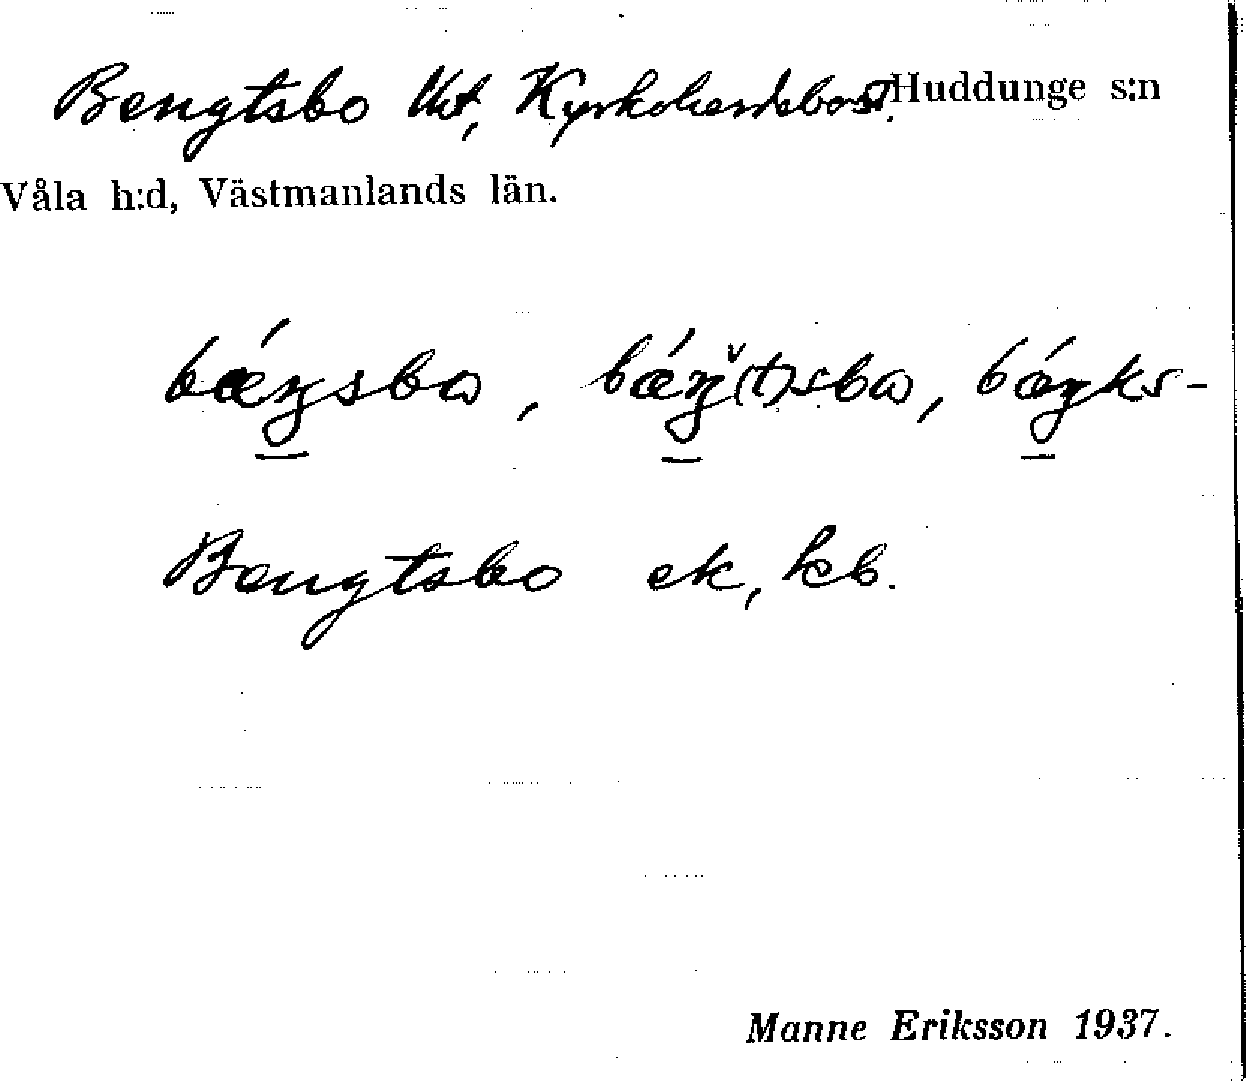 Bengtsbo Utt, Kyrkoherdebost. Huddunge s:n
Våla h:d, Västmanlands län.
bæŋsbo, bæŋ(t)sbo, bæŋks-
Bengtsbo ek, kb.
Manne Eriksson 1937.